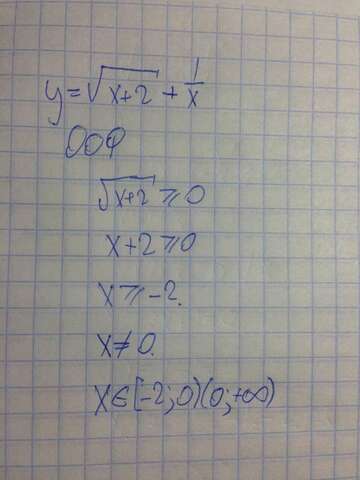 y=√x+2 + 1/x
ООФ
√x+2 ⩾ 0
x+2 ⩾ 0
x ⩾ -2.
x ≠ 0.
x ∈ [-2; 0)(0; +∞)